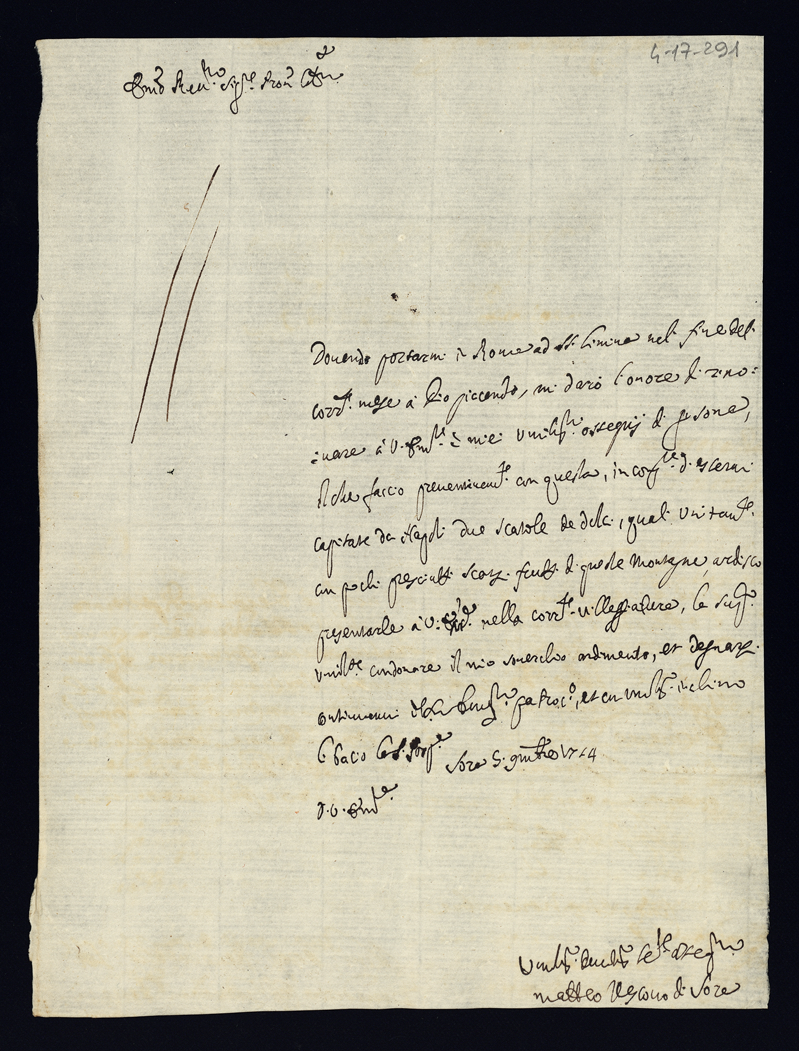 4-17-291
Em̃o Reu.mo Sig.re Pron̄ Col.mo
Douendo portarmi in Roma ad SS. Limina nel fine del
corr.te mese à Dio piacendo, mi darò l'onore di rino=
uare à V. Em.za i miei umiliss.mi ossequij di persona,
il che faccio preuentiuam.te con questa, in cong.re d'essermi
capitate da Napoli due scatole de dolci, quali unitam.te
con pochi presciutti scarzi frutti di queste Montagne, ardisco
presentarle à V. Em.za nella corr.te uilleggiatura, la supp.co
umilm.te condonare il mio souerchio ardimento, et degnarsi
continuarmi il suo patroc.o, et con umiliss.o inchino
le bacio la S. Porp.a Sora 5. 1724
D. V. Em.za
Umiliss. Deuotiss. Oss.mo
Matteo Vescouo di Sora